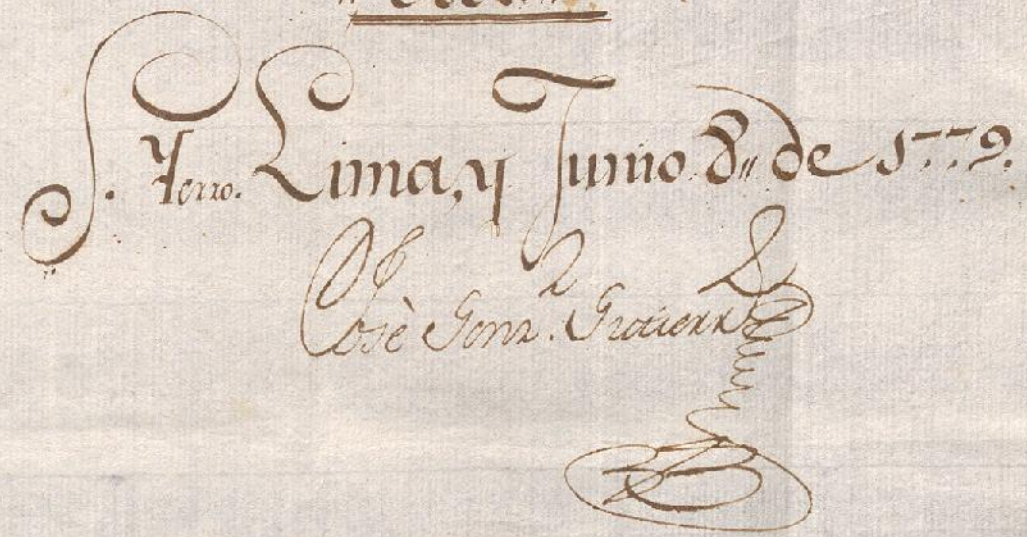 S. Yerro. Lima, y Junio 8,, de 1779.
José Gonz. Gutierrz